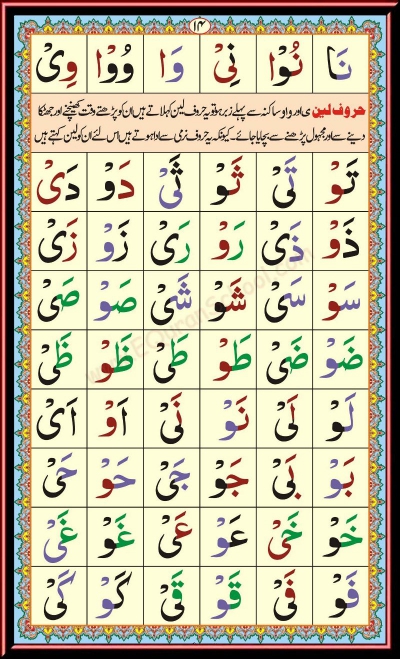 ۱۴
نَا نُوْا نِىْ وَا وُوْا وِىْ
حروف لین ی اور واو ساکنہ سے پہلے زبر ہو تو یہ حروف لین کہلاتے ہیں ان کو پڑھتے وقت کھینچنے اور جھٹکا
دینے سے اور مجہول پڑھنے سے بچایا جائے۔ کیونکہ یہ حروف نرمی سے ادا ہوتے ہیں اس لئے ان کو لین کہتے ہیں
تَوْ تَىْ ثَوْ ثَىْ دَوْ دَىْ
ذَوْ ذَىْ رَوْ رَىْ زَوْ زَىْ
سَوْ سَىْ شَوْ شَىْ صَوْ صَىْ
ضَوْ ضَىْ طَوْ طَىْ ظَوْ ظَىْ
لَوْ لَىْ نَوْ نَىْ اَوْ اَىْ
بَوْ بَىْ جَوْ جَىْ حَوْ حَىْ
خَوْ خَىْ عَوْ عَىْ غَوْ غَىْ
فَوْ فَىْ قَوْ قَىْ كَوْ كَىْ
www.EQuranSchool.com